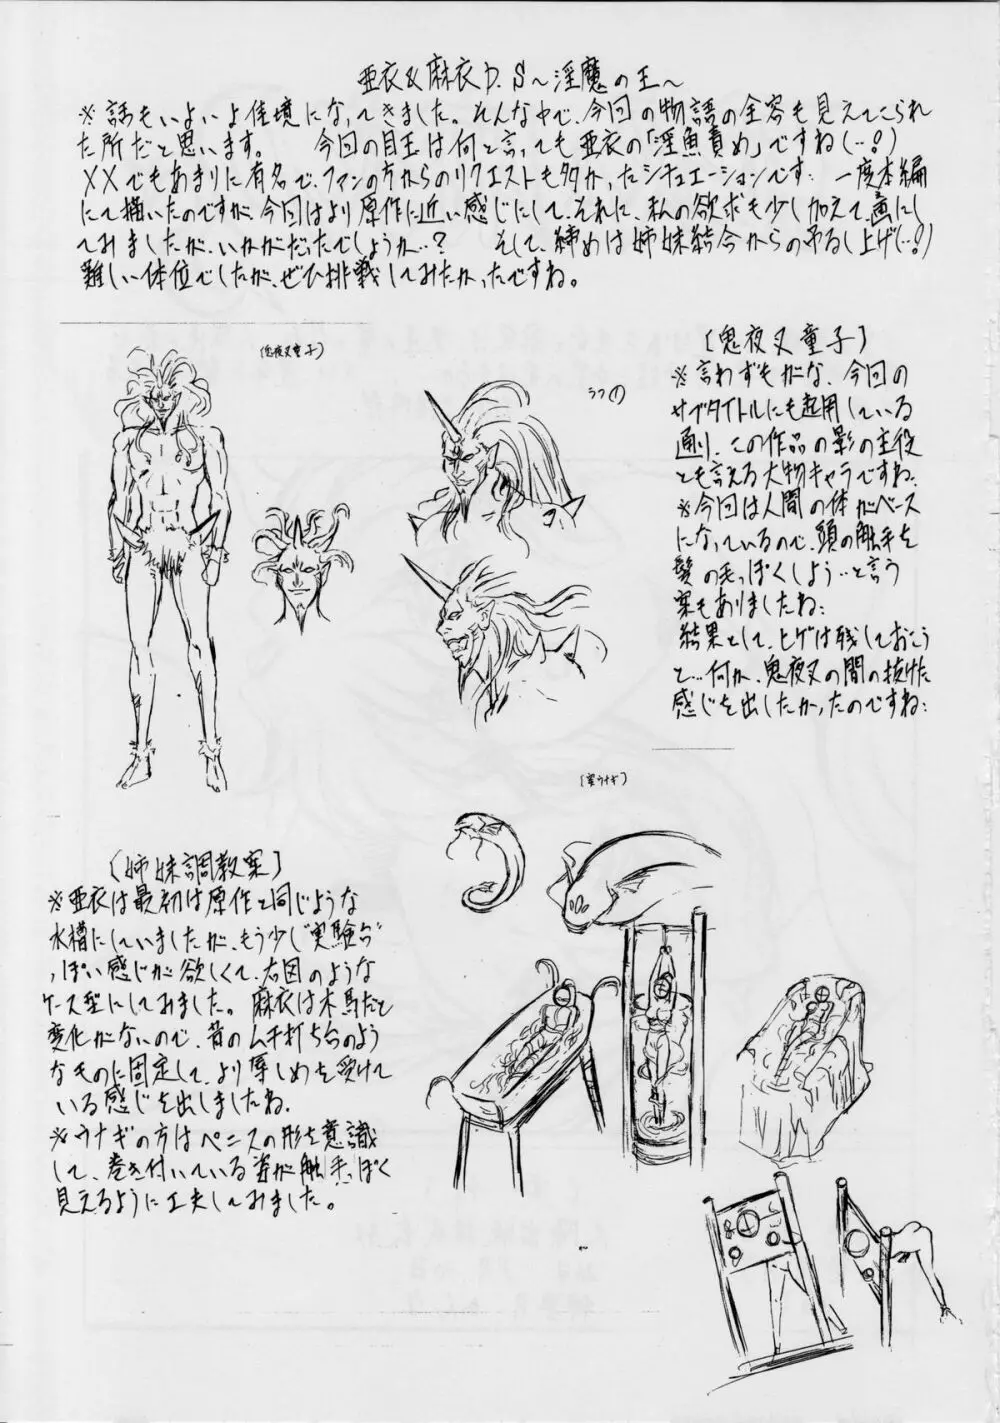 亜衣&麻衣D.S～淫魔の王～
※話もいよいよ佳境になってきました。そんな中で、今回の物語の全容も見えてこられ
た所だと思います。　今回の目玉は何と言っても亜衣の「淫魚責め」ですね(…!)
XXでもあまりに有名で、ファンの方からのリクエストも多かったシチュエーションです: 一度本編
にて描いたのですが、今回はより原作に近い感じにして、それに、私の欲求も少し加えて、画にし
てみましたが、いかがだったでしょうか…?　そして、締めは姉妹結合からの吊るし上げ(…!)
難しい体位でしたが、ぜひ挑戦してみたかったですね。
(鬼夜叉童子)
ラフ①
〔鬼夜叉童子〕
※言わずもがな、今回の
サブタイトルにも起用している
通り、この作品の影の主役
とも言える大物キャラですね.
※今回は人間の体がベース
になっているので、頭の触手を
髪の毛っぽくしよう…と言う
案もありましたね:
結果として、ヒゲは残しておこう
と…何か、鬼夜叉の間の抜けた
感じを出したかったのですね:
〔姉妹調教案〕
※亜衣は最初は原作と同じような
水槽にしていましたが、もう少し"実験台"
っぽい感じが欲しくて、右図のような
ケース型にしてみました。麻衣は木馬だと
変化がないので、昔のムチ打ち台のよう
なものに固定して、より辱しめを受けて
いる感じを出しましたね.
※ウナギの方はペニスの形を意識
して、巻き付いている姿が触手っぽく
見えるように工夫してみました。